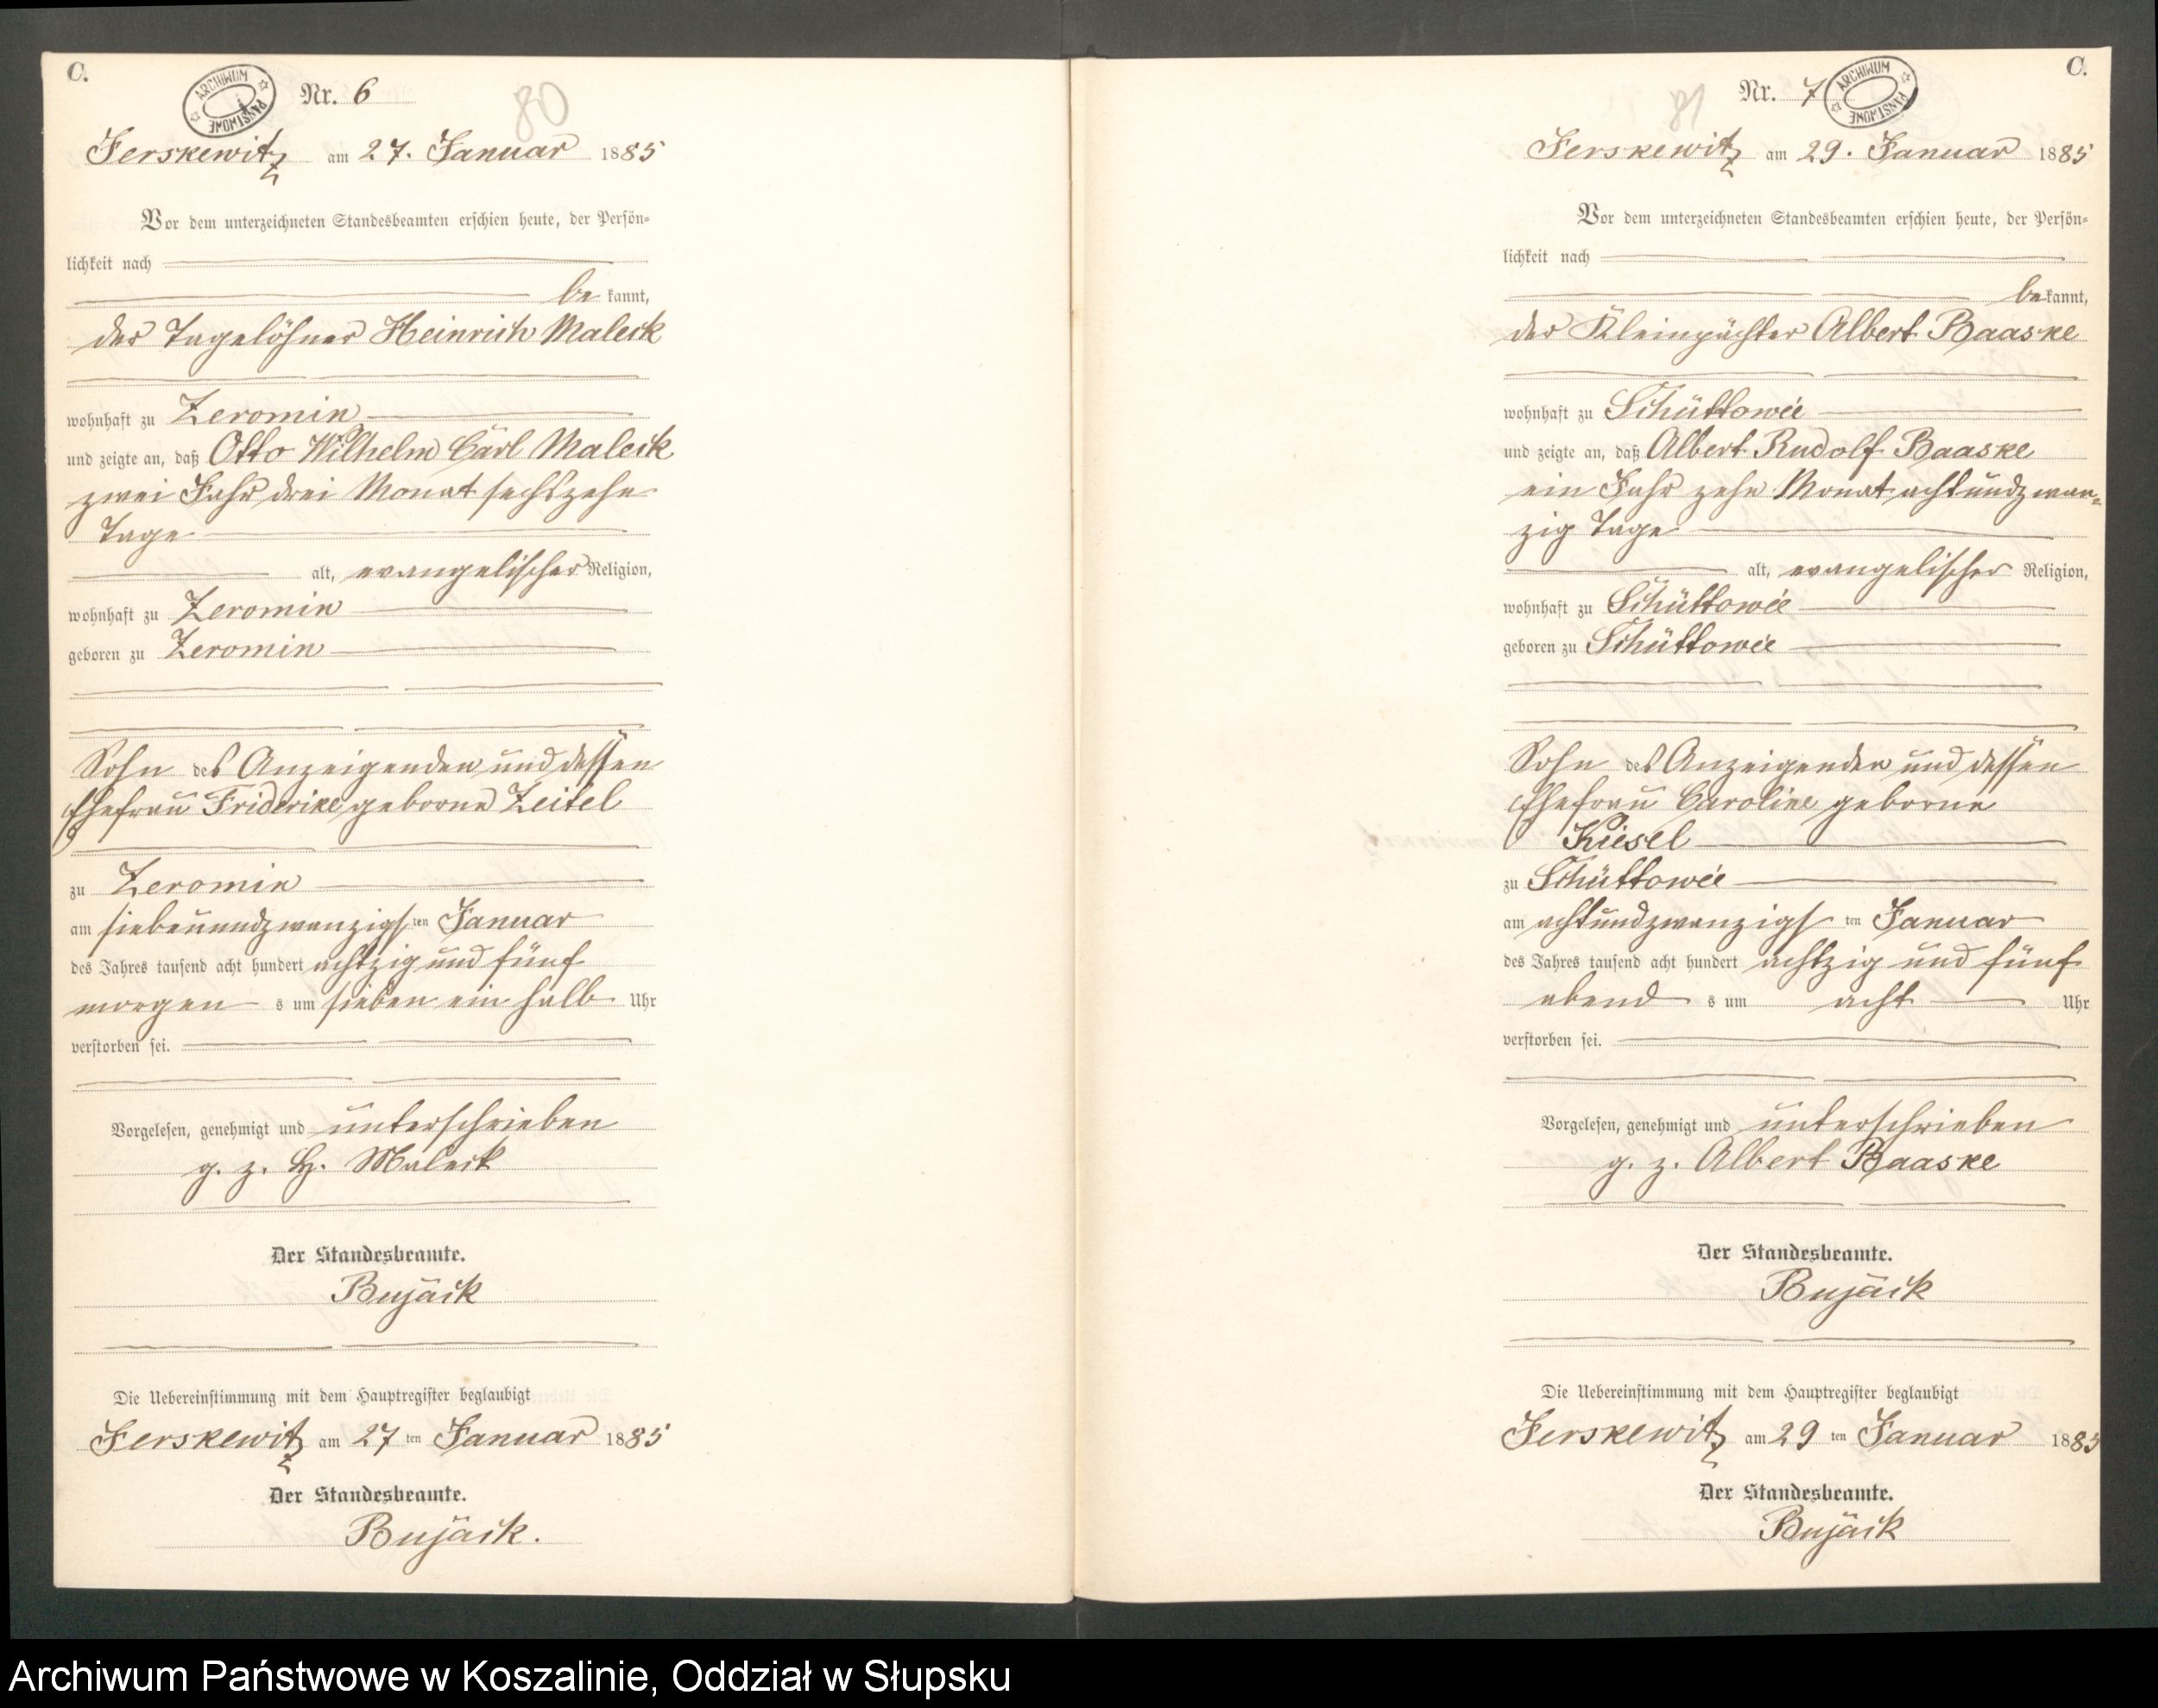 C.
ARCHIWUM PAŃSTWOWE
Nr. 6
80
Jerskewitz am 27. Januar 1885
Vor dem unterzeichneten Standesbeamten erschien heute, der Persön-
lichkeit nach
be kannt,
der Tagelöhner Heinrich Maleck
wohnhaft zu Zeromin
und zeigte an, daß Otto Wilhelm Carl Maleck
zwei Jahr drei Monat sechszehn
Tage
alt, evangelischer Religion,
wohnhaft zu Zeromin
geboren zu Zeromin
Sohn des Anzeigenden und dessen
Ehefrau Friderike geborne Zeitel
zu Zeromin
am siebenundzwanzigsten Januar
des Jahres tausend acht hundert achtzig und fünf
morgen s um sieben ein halb Uhr
verstorben sei.
Vorgelesen, genehmigt und unterschrieben
g. z. H. Maleck
Der Standesbeamte.
Bujäck
Die Uebereinstimmung mit dem Hauptregister beglaubigt
Jerskewitz am 27 ten Januar 1885
Der Standesbeamte.
Bujäck.
C.
ARCHIWUM PAŃSTWOWE
Nr. 7
81
Jerskewitz am 29. Januar 1885
Vor dem unterzeichneten Standesbeamten erschien heute, der Persön-
lichkeit nach
be kannt,
der Kleinpächter Albert Baaske
wohnhaft zu Schüttowée
und zeigte an, daß Albert Rudolf Baaske
ein Jahr zehn Monat achtundzwan-
zig Tage
alt, evangelischer Religion,
wohnhaft zu Schüttowée
geboren zu Schüttowée
Sohn des Anzeigenden und dessen
Ehefrau Caroline geborne
Kiesel
zu Schüttowée
am achtundzwanzigsten Januar
des Jahres tausend acht hundert achtzig und fünf
abend s um acht Uhr
verstorben sei.
Vorgelesen, genehmigt und unterschrieben
g. z. Albert Baaske
Der Standesbeamte.
Bujäck
Die Uebereinstimmung mit dem Hauptregister beglaubigt
Jerskewitz am 29 ten Januar 1885
Der Standesbeamte.
Bujäck
Archiwum Państwowe w Koszalinie, Oddział w Słupsku